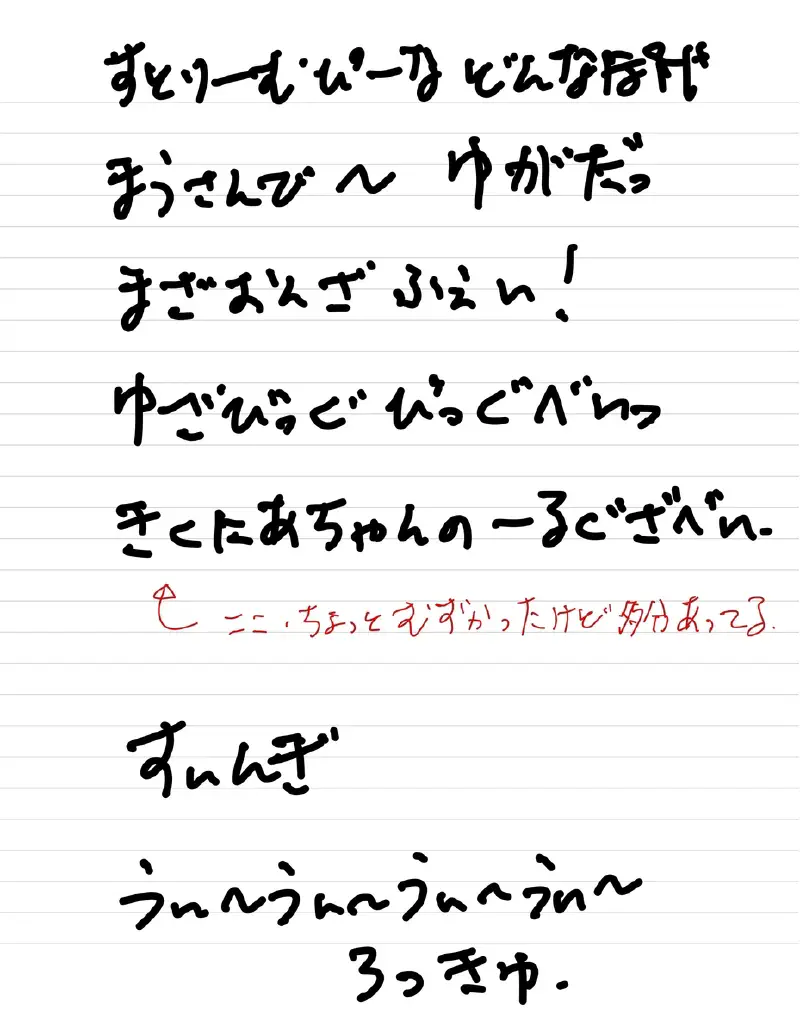 すとりーむぴーな どんなほわわ
まうさんび〜 ゆがだっ
まざおんざ ふぇい!
ゆざびっぐ びっぐべいっ
きくにあちゃんの ーるぐざべい.
ここ、ちょっとむずかったけど多分あってる.
すぃんぎ
うぃ〜うぃ〜うぃ〜うぃ〜
ろっきゅ.